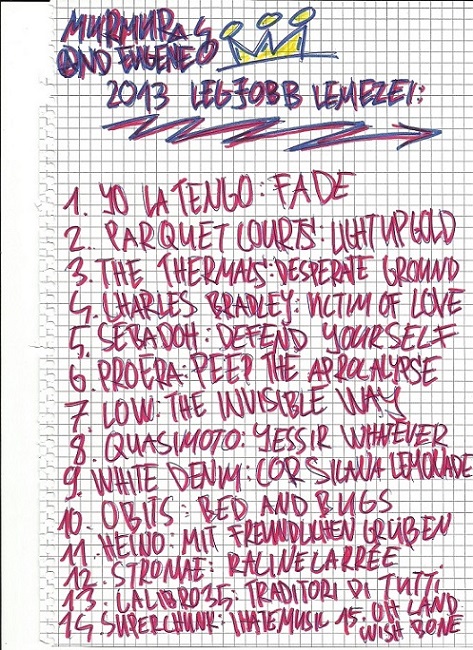 MURMURAS
AND EUGENEO
2013 LEGJOBB LEMEZEI:
1. YO LA TENGO: FADE
2. PARQUET COURTS: LIGHT UP GOLD
3. THE THERMALS: DESPERATE GROUND
4. CHARLES BRADLEY: VICTIM OF LOVE
5. SEBADOH: DEFEND YOURSELF
6. PROERA: PEEP THE APROCALYPSE
7. LOW: THE INVISIBLE WAY
8. QUASIMOTO: YESSIR WHATEVER
9. WHITE DENIM: CORSICANA LEMONADE
10. OBITS: BED AND BUGS
11. HEINO: MIT FREUNDLICHEN GRÜBEN
12. STROMAE: RACINE CARRÉE
13. CALIBRO35: TRADITORI DI TUTTI
14. SUPERCHUNK: I HATE MUSIC 15. OH LAND
WISH BONE